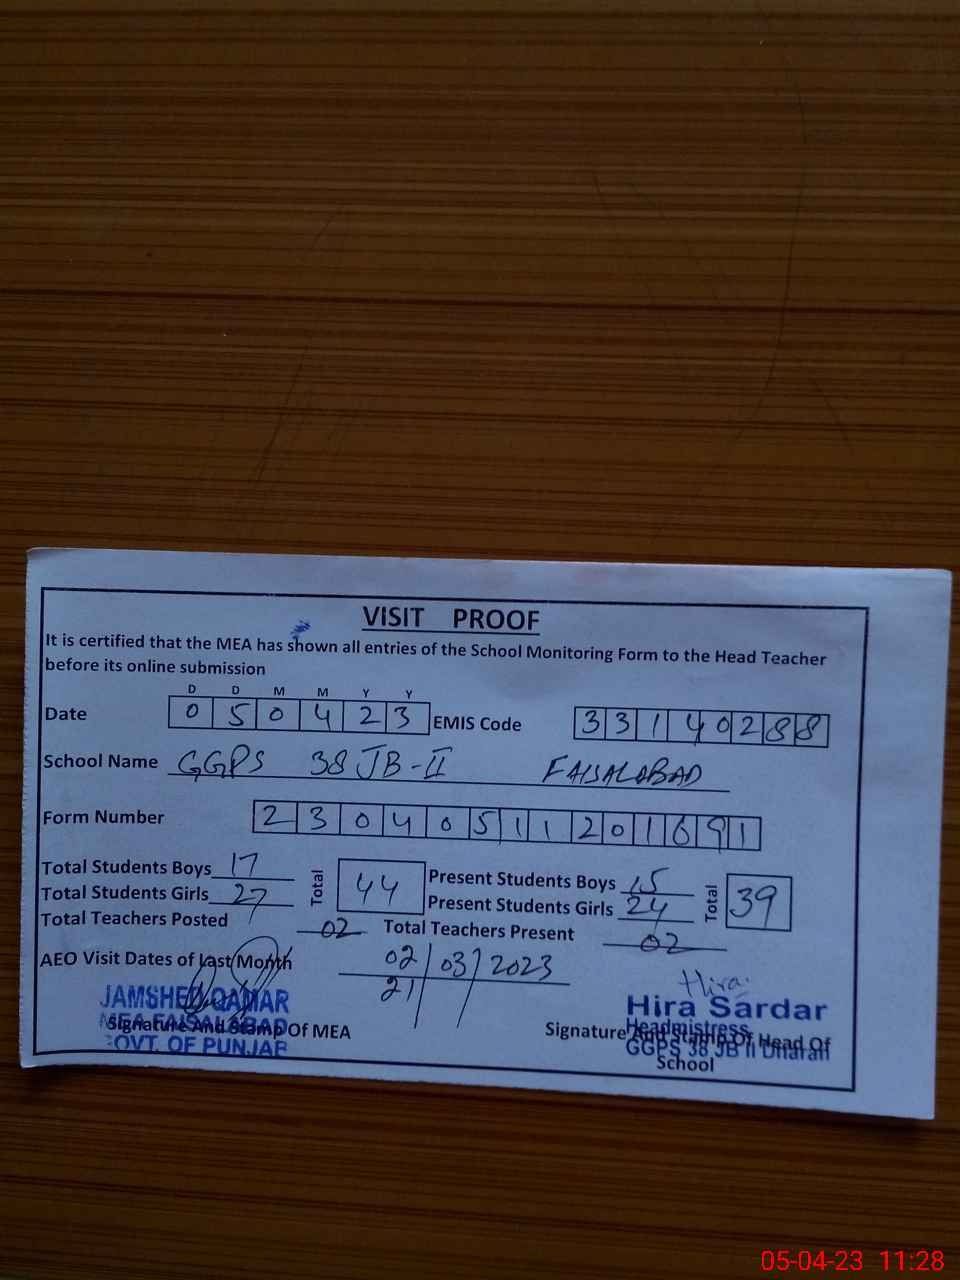 VISIT PROOF
It is certified that the MEA has shown all entries of the School Monitoring Form to the Head Teacher
before its online submission
D D M M Y Y
Date 0 5 0 4 2 3 EMIS Code 3 3 1 4 0 2 8 8
School Name GGPS 38 JB-II FAISALABAD
Form Number 2 3 0 4 0 5 1 1 2 0 1 6 9 1
Total Students Boys 17 Total 44 Present Students Boys 15 Total 39
Total Students Girls 27 Present Students Girls 24
Total Teachers Posted 02 Total Teachers Present 02
AEO Visit Dates of last Month 02/03/2023
21
Hira
JAMSHED QAMAR
MEA FAISALABAD
GOVT. OF PUNJAB
Signature And Stamp Of MEA
Hira Sardar
Headmistress
GGPS 38 JB II Dharan
Signature And Stamp Of Head Of
School
05-04-23 11:28